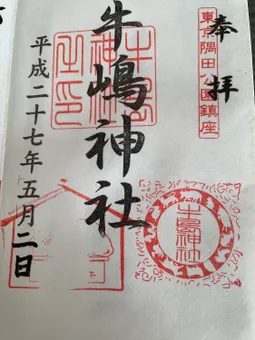 奉拝
東京隅田公園鎮座
牛嶋神社
牛嶋神社之印
牛嶋神社
平成二十七年五月二日